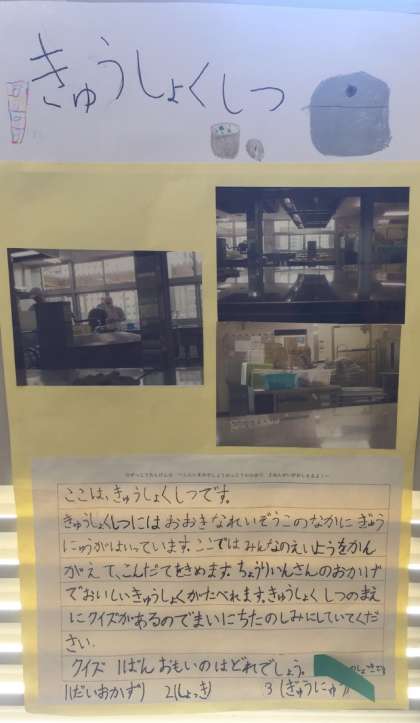 きゅうしょくしつ
ここは、きゅうしょくしつです。
きゅうしょくしつにはおおきなれいぞうこのなかにぎょう
にゅうがはいっています。ここではみんなのえいようをかん
がえて、こんだてをきめます。ちょうりいんさんのおかげ
でおいしいきゅうしょくがたべれます。きゅうしょくしつのまえ
にクイズがあるのでまいにちたのしみにしていてくだ
さい.
クイズ 1ばんおもいのはどれでしょう。
1(だいおかず) 2(しょっき) 3(ぎゅうにゅう)